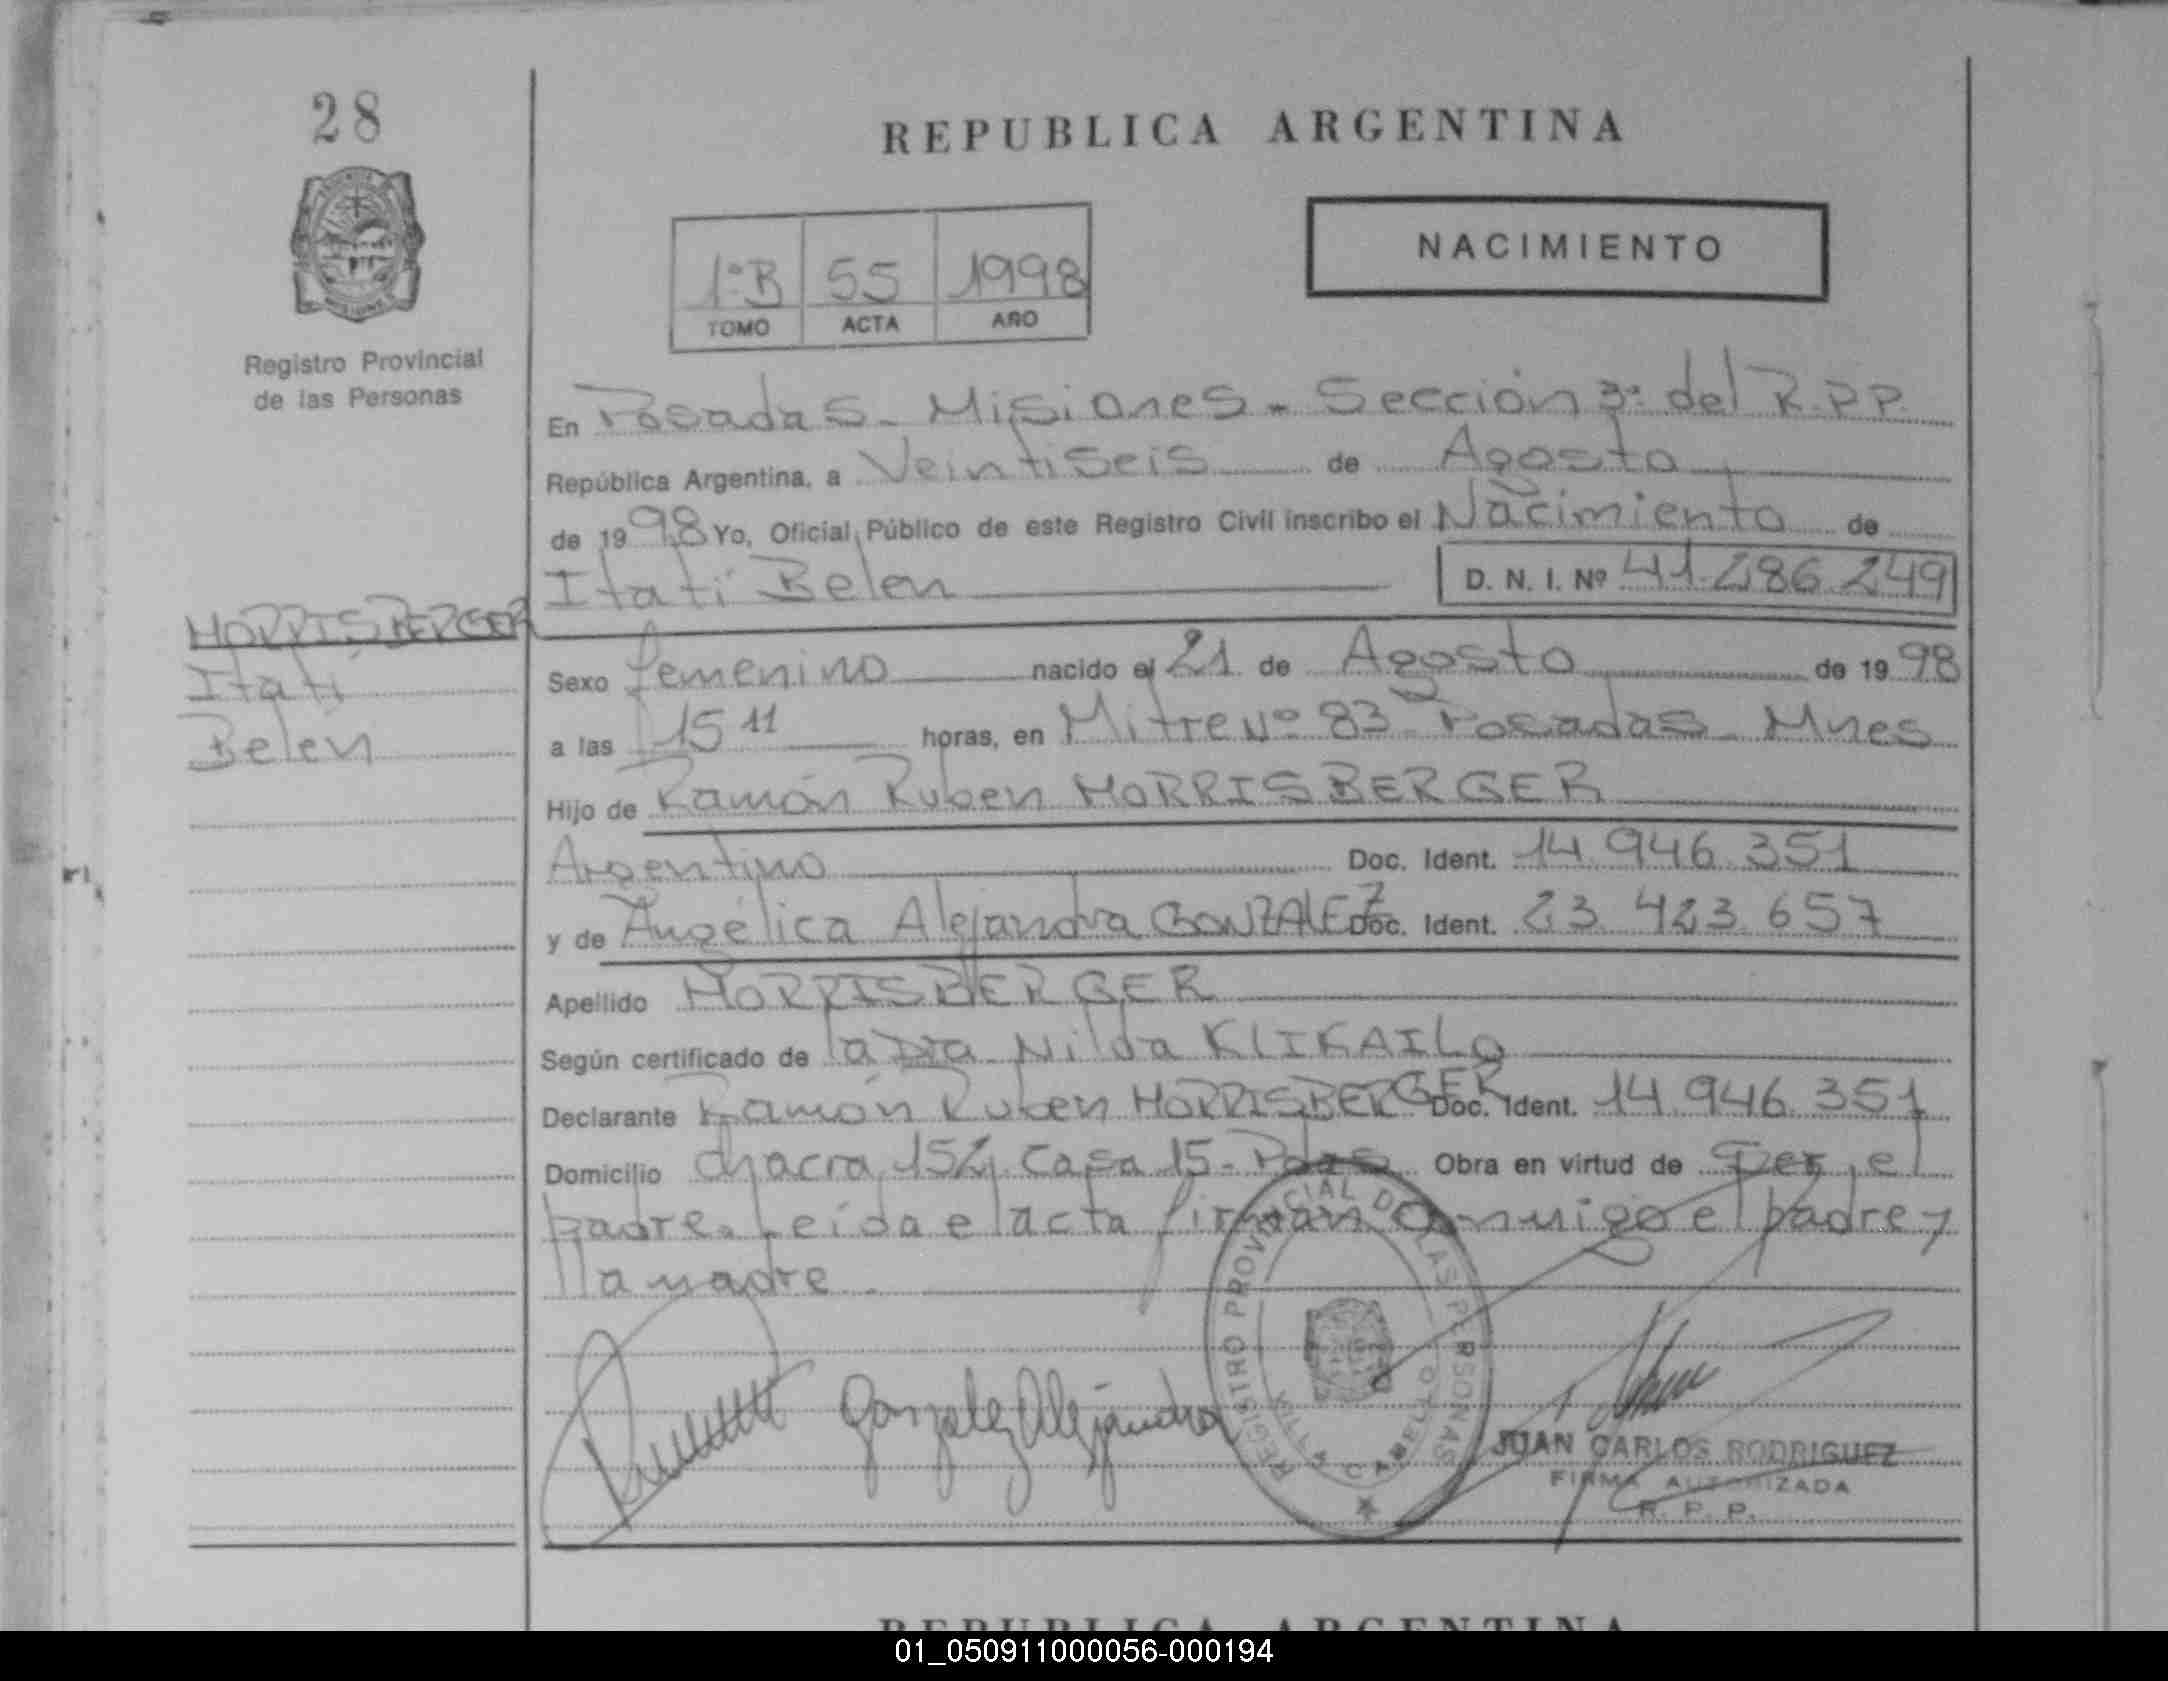 28
REPUBLICA ARGENTINA
NACIMIENTO
1ºB 55 1998
TOMO ACTA AÑO
Registro Provincial
de las Personas
En Posadas - Misiones - Sección 3ª del R.P.P.
República Argentina, a Veintiseis de Agosto
de 1998 Yo, Oficial Público de este Registro Civil inscribo el Nacimiento de
Itatí Belen D. N. I. Nº 41.286.249
MORRISBERGER
Itatí
Belén
Sexo femenino nacido el 21 de Agosto de 1998
a las 15 11 horas, en Mitre Nº 83 Posadas - Mnes
Hijo de Ramón Ruben MORRISBERGER
Argentino Doc. Ident. 14.946.351
y de Angélica Alejandra GONZALEZ Doc. Ident. 23.423.657
Apellido MORRISBERGER
Según certificado de la Dra Nilda KLIKAILO
Declarante Ramón Ruben MORRISBERGER Doc. Ident. 14.946.351
Domicilio chacra 152 Casa 15 - Pdas Obra en virtud de ser el
padre. Leída el acta firman conmigo el padre y
la madre.
Gonzalez Alejandra
REGISTRO PROVINCIAL DE LAS PERSONAS
VILLA CABELLO
JUAN CARLOS RODRIGUEZ
FIRMA AUTORIZADA
R. P. P.
REPUBLICA ARGENTINA
01_050911000056-000194